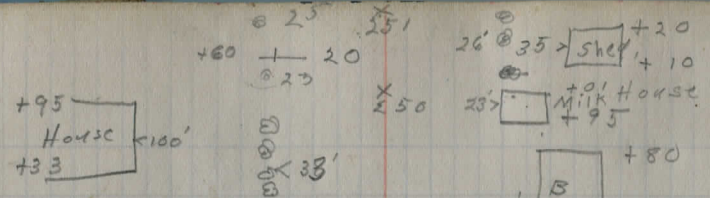 25
251
26' 35> Shed +20
+60 20
+10
23
+95
250
23'> Milk House +01
+95
House <100'
+33
<33'
+80
B